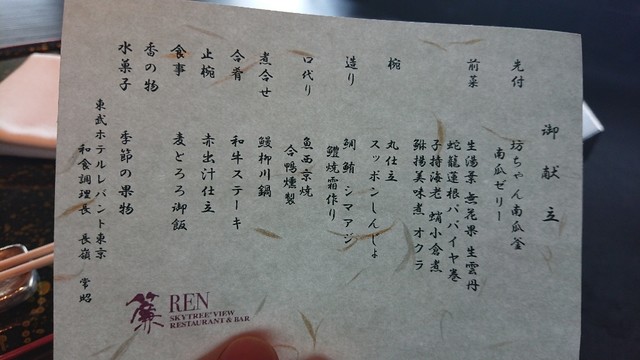 御献立
先付
坊ちゃん南瓜釜
南瓜ゼリー
前菜
生湯葉 無花果 生雲丹
蛇籠蓮根パパイヤ巻
子持海老 蛸小倉煮
鮴揚美味煮 オクラ
椀
丸仕立
スッポンしんじょ
造り
鯛 鮪 シマアジ
鱧焼霜作り
口代り
魚西京焼
合鴨燻製
煮合せ
鰻柳川鍋
合肴
和牛ステーキ
止椀
赤出汁仕立
食事
麦とろろ御飯
香の物
水菓子
季節の果物
東武ホテルレバント東京
和食調理長 長嶺 常昭
簾
REN
SKYTREE® VIEW
RESTAURANT & BAR